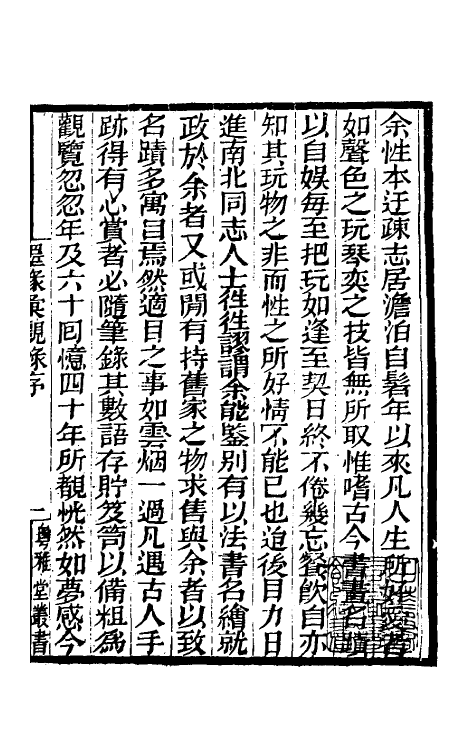 余性本迂疎志居澹泊自髫年以來凡人生所好愛者
如聲色之玩琴奕之技皆無所取惟嗜古今書畫名蹟
以自娛每至把玩如逢至契日終不倦幾忘餐飲自亦
知其玩物之非而性之所好情不能已也迨後目力日
進南北同志人士徃徃謬謂余能鑒別有以法書名繪就
政於余者又或閒有持舊家之物求售與余者以致
名蹟多寓目焉然適目之事如雲烟一過凡遇古人手
跡得有心賞者必隨筆錄其數語存貯笈笥以備粗為
觀覽忽忽年及六十回憶四十年所覩恍然如夢感今
墨緣彙觀錄序
一
粵雅堂叢書